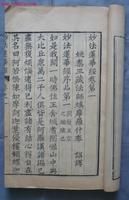 妙法蓮華經卷第一
姚秦三藏法師鳩摩羅什奉 詔譯
妙法蓮華經序品第一
如是我聞一時佛住王舍城耆闍崛山中與
大比丘眾萬二千人俱皆是阿羅漢諸漏已
盡無復煩惱逮得己利盡諸有結心得自在
其名曰阿若憍陳如摩訶迦葉優樓頻螺